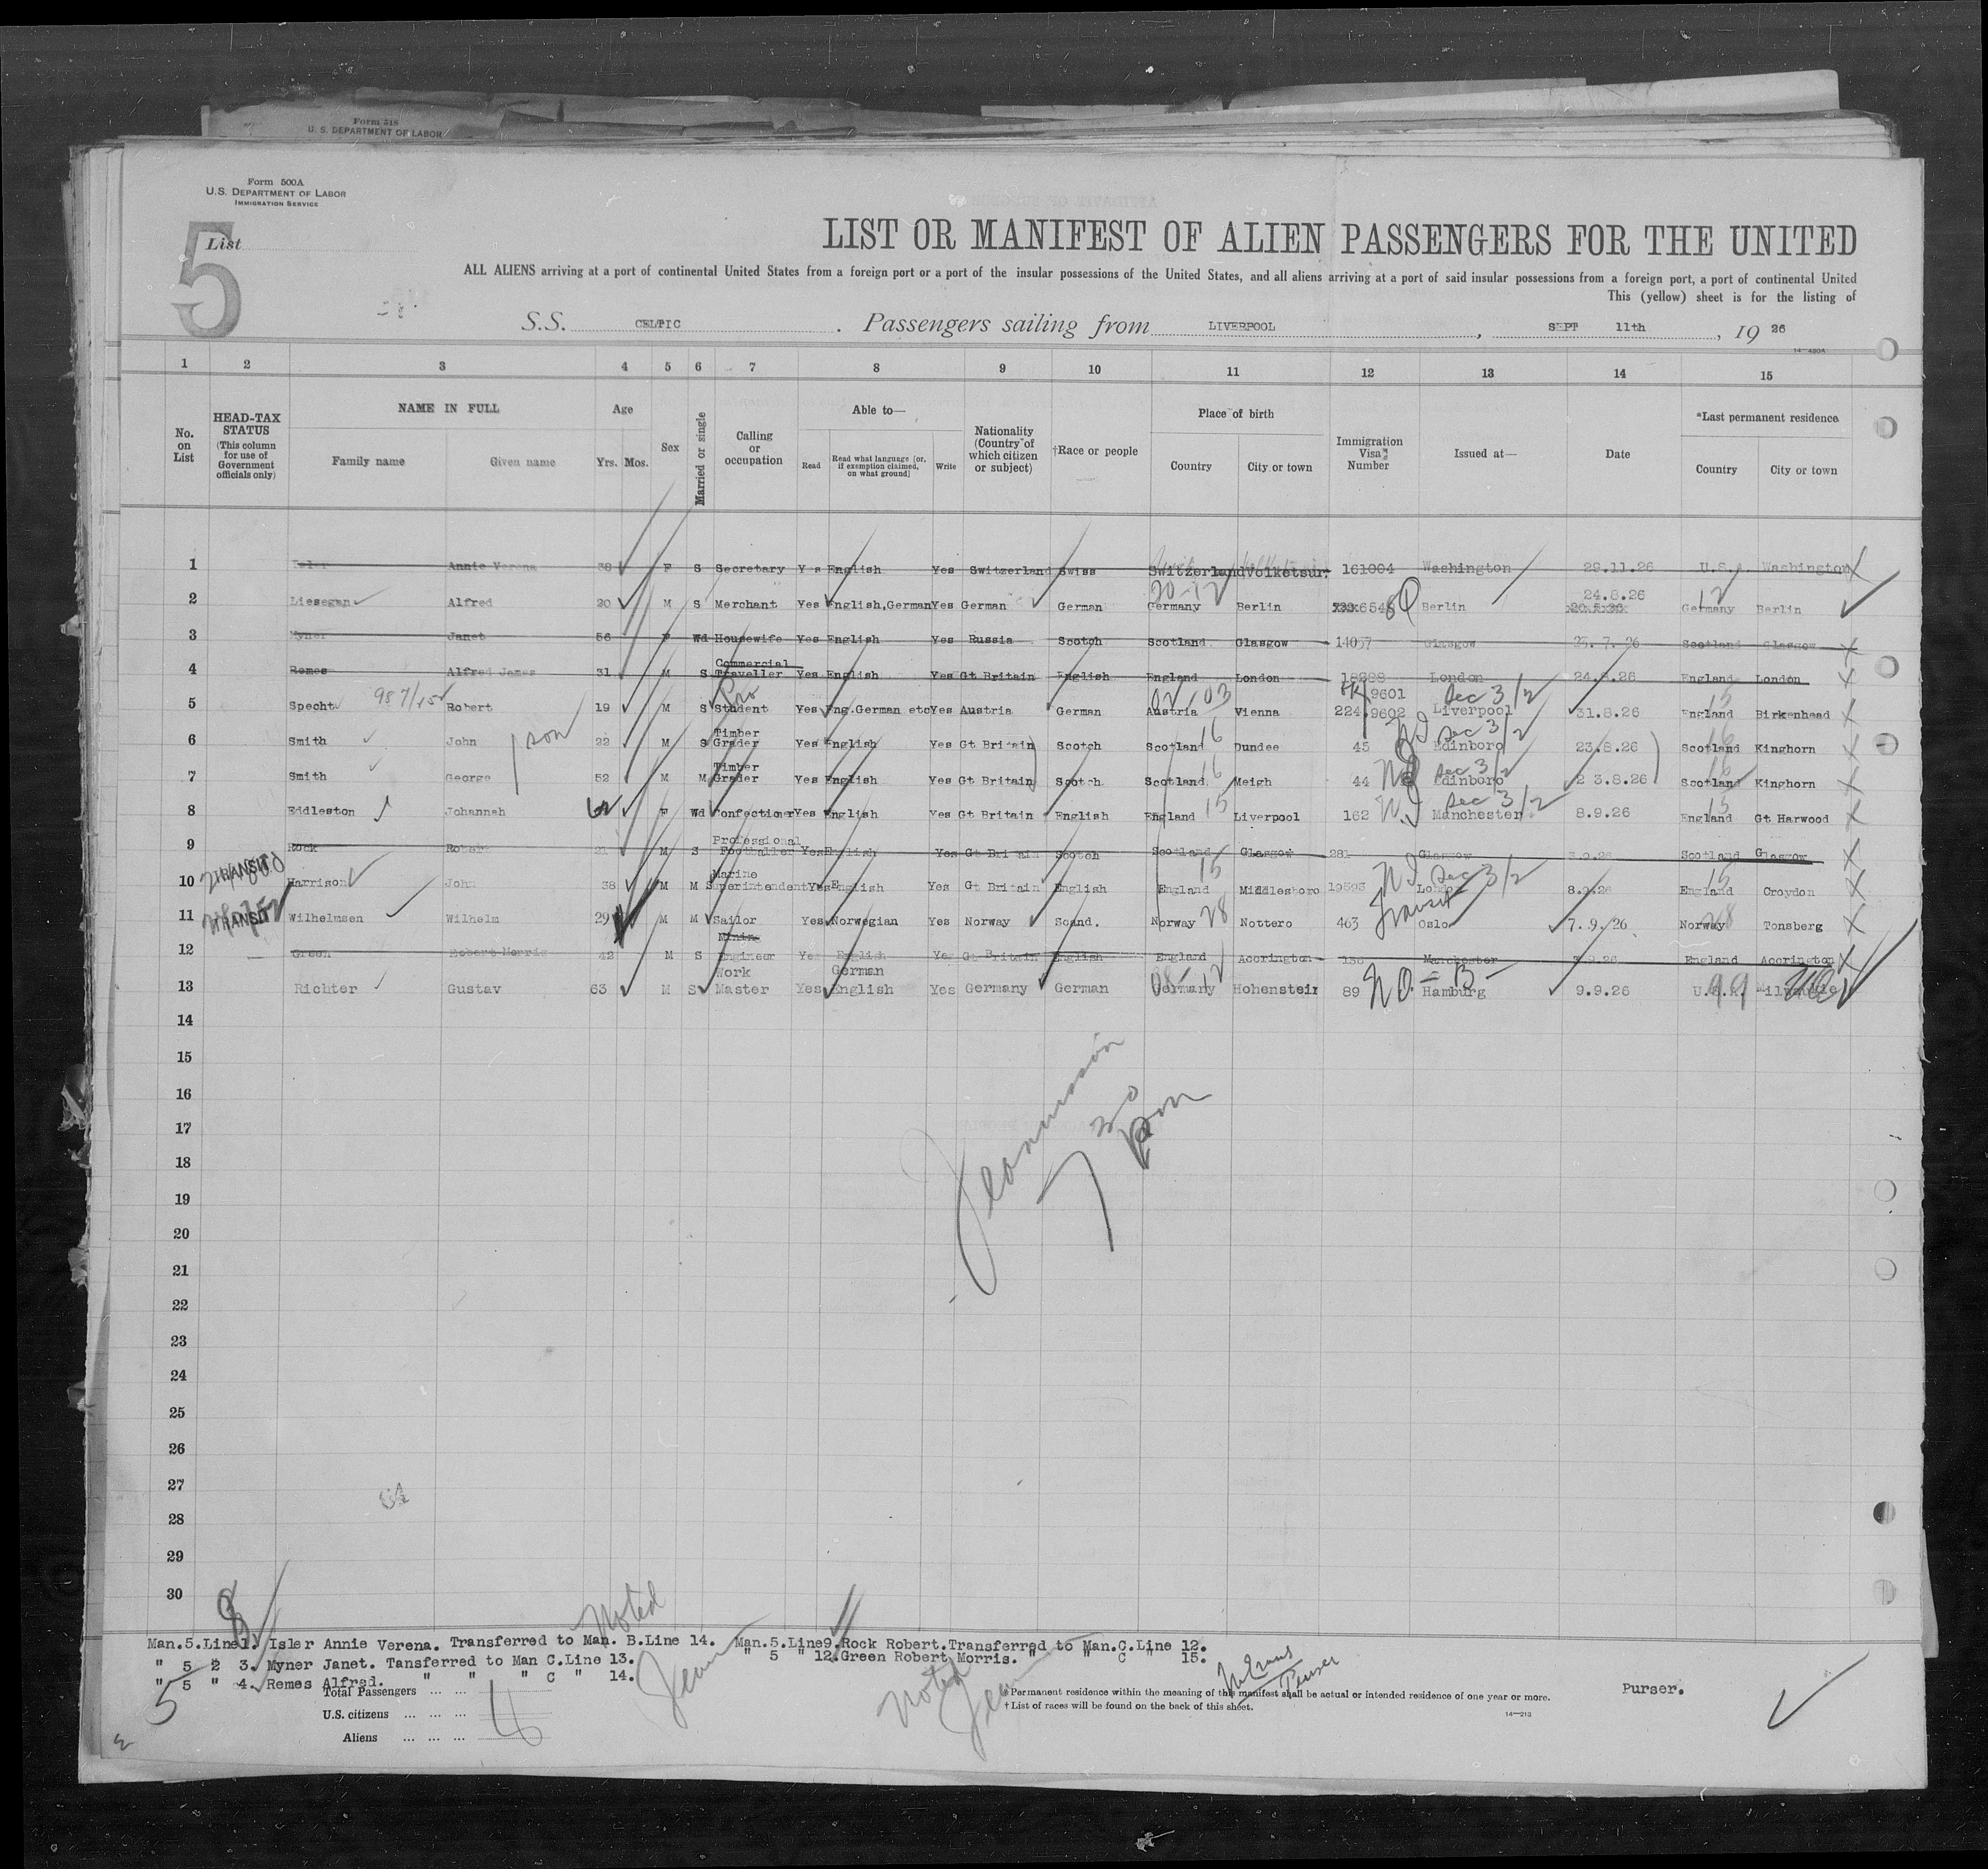 Form 518
U. S. DEPARTMENT OF LABOR
Form 500A
U.S. DEPARTMENT OF LABOR
IMMIGRATION SERVICE
5
List
LIST OR MANIFEST OF ALIEN PASSENGERS FOR THE UNITED
ALL ALIENS arriving at a port of continental United States from a foreign port or a port of the insular possessions of the United States, and all aliens arriving at a port of said insular possessions from a foreign port, a port of continental United
This (yellow) sheet is for the listing of
S.S. CELTIC . Passengers sailing from LIVERPOOL , SEPT 11th , 19 26
14—430A
1 2 3 4 5 6 7 8 9 10 11 12 13 14 15
No. on List
HEAD-TAX STATUS (This column for use of Government officials only)
NAME IN FULL
Family name Given name
Age
Yrs. Mos.
Sex
Married or single
Calling or occupation
Able to—
Read Read what language [or, if exemption claimed, on what ground] Write
Nationality (Country of which citizen or subject)
†Race or people
Place of birth
Country City or town
Immigration Visa Number
Issued at—
Date
*Last permanent residence
Country City or town
1 Isler Annie Verena 38 F S Secretary Yes English Yes Switzerland Swiss Switzerland Volketsur. 161004 Washington 29.11.26 U.S. Washington
20-12 24.8.26 12
2 Liesegan Alfred 20 M S Merchant Yes English,German Yes German German Germany Berlin Berlin Germany Berlin
3 Myner Janet 56 F Wd Housewife Yes English Yes Russia Scotch Scotland Glasgow 14057 Glasgow 23.7.26 Scotland Glasgow
Commercial
4 Remes Alfred James 31 M S Traveller Yes English Yes Gt Britain English England London London 24.8.26 England London
987/15 Pro 02 03 9601 Sec 3/2 15
5 Specht Robert 19 M S Student Yes Eng.German etc Yes Austria German Austria Vienna 224 9602 Liverpool 31.8.26 England Birkenhead
son Timber 16 Sec 3/2
6 Smith John 22 M S Grader Yes English Yes Gt Britain Scotch Scotland Dundee 45 Edinboro 23.8.26 Scotland Kinghorn
Timber 16 Sec 3/2
7 Smith George 52 M M Grader Yes English Yes Gt Britain Scotch Scotland Meigh 44 Edinboro 23.8.26 Scotland Kinghorn
15 Sec 3/2 15
8 Eddleston Johannah F Wd Confectioner Yes English Yes Gt Britain English England Liverpool 162 Manchester 8.9.26 England Gt Harwood
Professional
9 Rock Robert 21 M S Footballer Yes English Yes Gt Britain Scotch Scotland Glasgow 281 Glasgow Scotland Glasgow
TRANSIT Marine 15 Sec 3/2 15
10 Harrison John 38 M M Superintendent Yes English Yes Gt Britain English England Middlesboro London 8.9.26 England Croydon
TRANSIT Transit
11 Wilhelmsen Wilhelm 29 M M Sailor Yes Norwegian Yes Norway Scand. Norway 28 Nottero 463 Oslo 7.9.26 Norway 28 Tonsberg
12 Green Robert Morris 42 M S Engineer Yes English Yes Gt Britain English England Accrington Manchester England Accrington
Work German
13 Richter Gustav 63 M S Master Yes English Yes Germany German Germany Hohenstein 89 Hamburg 9.9.26 U.S.A. 99
14
15
16
17
18
19
20
21
22
23
24
25
26
27
28
29
30
7 30 pm
Noted
Man.5.Line 1. Isler Annie Verena. Transferred to Man. B.Line 14. Man.5.Line9.Rock Robert.Transferred to Man.C.Line 12.
" 5 " 3. Myner Janet. Tansferred to Man C.Line 13. " 5 " 12.Green Robert Morris. " " C " 15.
" 5 " 4. Remes Alfred. " " " C " 14.
Noted
Purser
Total Passengers ... ...
U.S. citizens ... ... ...
Aliens ... ... ...
*Permanent residence within the meaning of this manifest shall be actual or intended residence of one year or more.
†List of races will be found on the back of this sheet.
14—213
Purser.
5